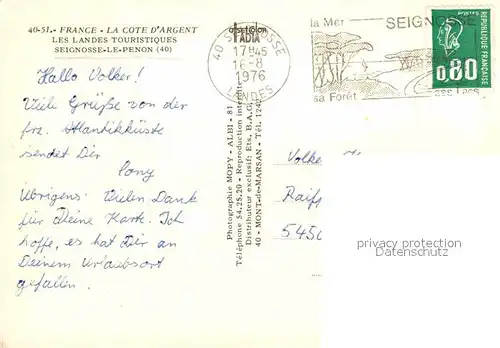 40-51.- FRANCE - LA COTE D'ARGENT
LES LANDES TOURISTIQUES
SEIGNOSSE-LE-PENON (40)
Hallo Volker!
Viele Grüße von der
frz. Atlantikküste
sendet Dir
Cony
Übrigens: Vielen Dank
für Deine Karte. Ich
hoffe, es hat Dir an
Deinem Urlaubsort
gefallen.
Photographie MOPY - ALBI - 81
Téléphone 54.25.20 - Reproduction interdite
Distributeur exclusif: Ets. B.A.G.
40 - MONT-de-MARSAN - Tél.
FADIA
40 SEIGNOSSE
17H45
16-8
1976
LANDES
la Mer
SEIGNOSSE
sa Forêt
ses Lacs
POSTES
FRANCE
0,80
Volke
Raiff
5450
privacy protection
DSGVO